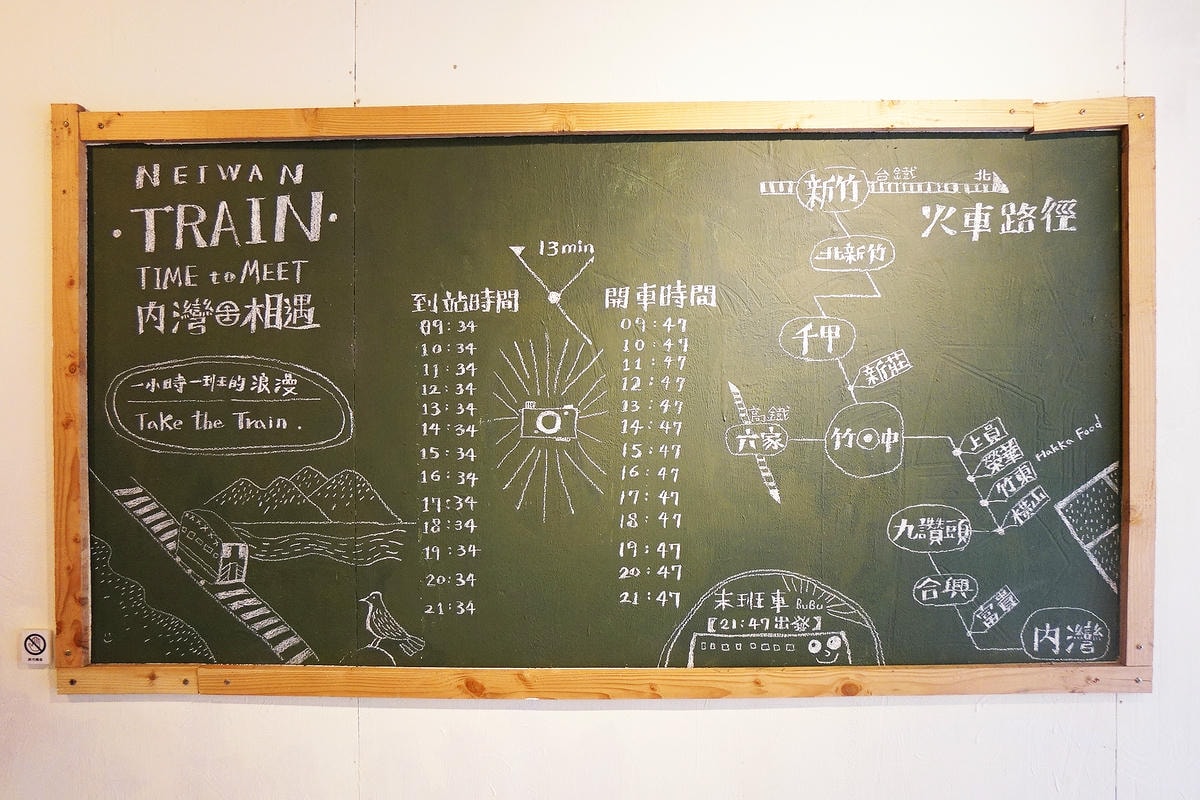 NEIWAN
·TRAIN·
TIME to MEET
内灣 相遇
一小時一班的浪漫
Take the Train.
13min
到站時間
09:34
10:34
11:34
12:34
13:34
14:34
15:34
16:34
17:34
18:34
19:34
20:34
21:34
開車時間
09:47
10:47
11:47
12:47
13:47
14:47
15:47
16:47
17:47
18:47
19:47
20:47
21:47
末班車 BuBu
【21:47出發】
火車路徑
新竹 台鐵 北
北新竹
千甲
新莊
高鐵
六家
竹中
上員
榮華
竹東 Hakka Food
橫山
九讚頭
合興
富貴
内灣